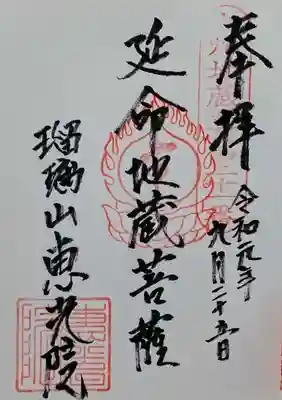 奉拝
令和元年
九月二十五日
延命地蔵菩薩
瑠璃山恵光院